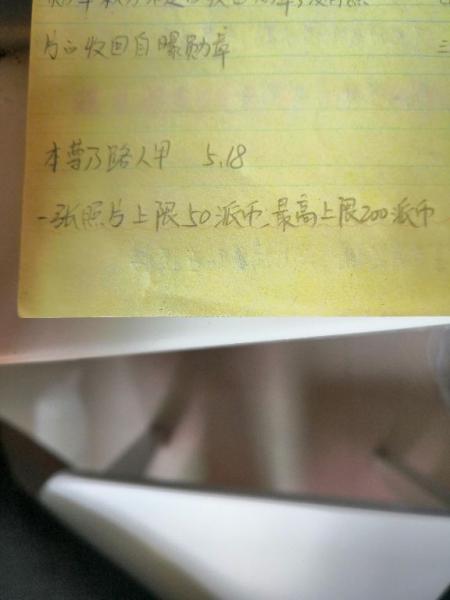 片而收回自曝勋章
三
本尊乃路人甲 5.18
一张照片上限50派币、最高上限200派币